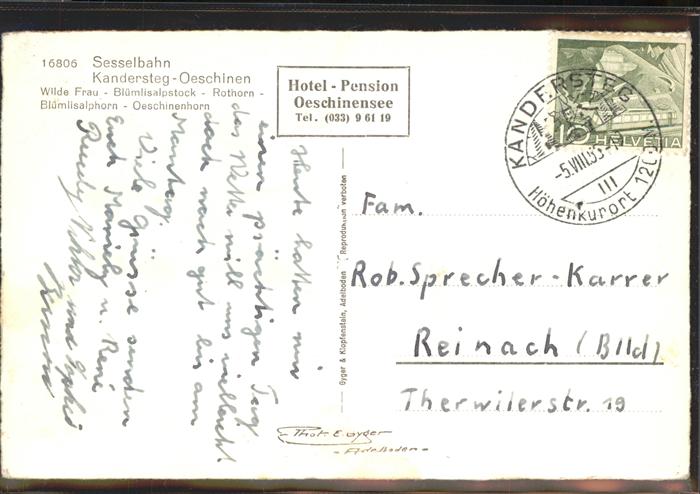 16806 Sesselbahn
Kandersteg-Oeschinen
Wilde Frau - Blümlisalpstock - Rothorn -
Blümlisalphorn - Oeschinenhorn
Hotel - Pension
Oeschinensee
Tel. (033) 9 61 19
Heute hatten wir
einen prächtigen Tag,
das Wetter will uns vielleicht
doch noch gut bis am
Montag.
Viele Grüsse senden
Euch Mamely u. René
Ruedy und
Gyger & Klopfenstein, Adelboden Reproduktion verboten
KANDERSTEG
-5.VIII.53
III
Höhenkurort 1200 M.
10 HELVETIA
Fam.
Rob. Sprecher-Karrer
Reinach (Blld)
Therwilerstr. 19
Phot E Gyger
- Adelboden -